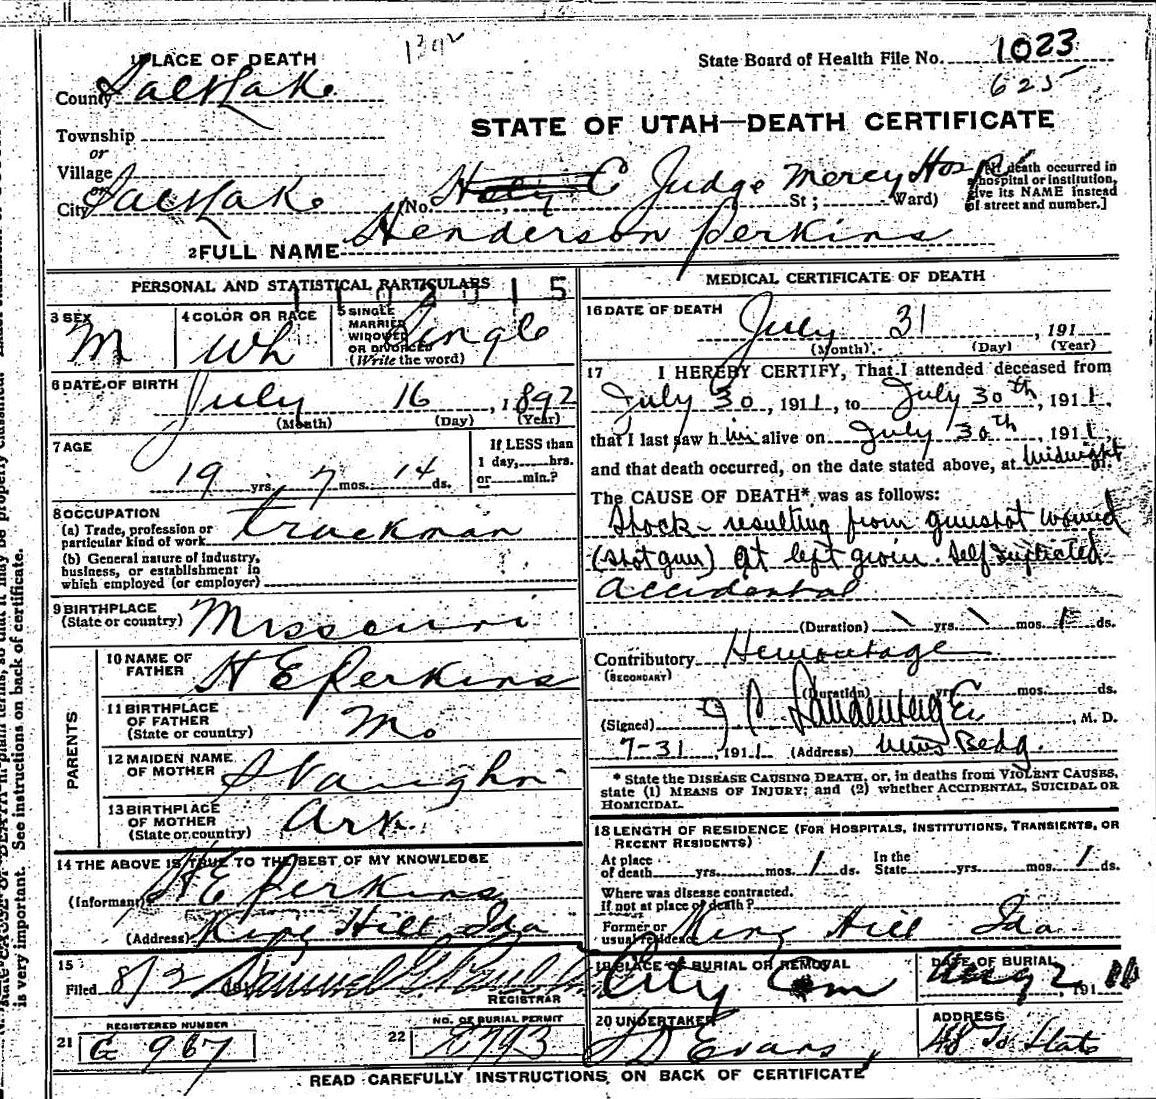 1392
1 PLACE OF DEATH
State Board of Health File No. 1023
625
County Salt Lake
STATE OF UTAH—DEATH CERTIFICATE
Township
or
Village
or
City Salt Lake (No. Holy C Judge Mercy Hosp St; Ward) [If death occurred in a hospital or institution, give its NAME instead of street and number.]
2 FULL NAME Henderson Perkins
PERSONAL AND STATISTICAL PARTICULARS
15
3 SEX M
4 COLOR OR RACE Wh
5 SINGLE MARRIED WIDOWED OR DIVORCED (Write the word) Single
6 DATE OF BIRTH July 16, 1892
(Month) (Day) (Year)
7 AGE 19 yrs. 7 mos. 14 ds.
If LESS than 1 day, hrs. or min.?
8 OCCUPATION
(a) Trade, profession or particular kind of work truckman
(b) General nature of industry, business, or establishment in which employed (or employer)
9 BIRTHPLACE (State or country) Missouri
PARENTS
10 NAME OF FATHER H E Perkins
11 BIRTHPLACE OF FATHER (State or country) Mo
12 MAIDEN NAME OF MOTHER Vaughn
13 BIRTHPLACE OF MOTHER (State or country) Ark.
14 THE ABOVE IS TRUE TO THE BEST OF MY KNOWLEDGE
(Informant) H E Perkins
(Address) King Hill Ida
15
Filed 8/2 191 Samuel G
REGISTRAR
REGISTERED NUMBER
21 G 967
NO. OF BURIAL PERMIT
22 E793
MEDICAL CERTIFICATE OF DEATH
16 DATE OF DEATH July 31, 191
(Month) (Day) (Year)
17 I HEREBY CERTIFY, That I attended deceased from
July 30, 1911, to July 30th, 1911,
that I last saw him alive on July 30th, 1911
and that death occurred, on the date stated above, at Midnight m.
The CAUSE OF DEATH* was as follows:
Shock - resulting from gunshot wound
(shot gun) at left groin. Self inflicted
accidental
(Duration) \ yrs. \ mos. 1 ds.
Contributory Hemorrhage
(SECONDARY)
(Duration) yrs. mos. ds.
(Signed) J C Landenberger, M. D.
7-31, 1911 (Address) Bldg.
* State the DISEASE CAUSING DEATH, or, in deaths from VIOLENT CAUSES, state (1) MEANS OF INJURY; and (2) whether ACCIDENTAL, SUICIDAL OR HOMICIDAL.
18 LENGTH OF RESIDENCE (FOR HOSPITALS, INSTITUTIONS, TRANSIENTS, OR RECENT RESIDENTS)
At place of death yrs. mos. 1 ds. In the State yrs. mos. 1 ds.
Where was disease contracted. If not at place of death?
Former or usual residence King Hill Ida
19 PLACE OF BURIAL OR REMOVAL City Cem
DATE OF BURIAL Aug 2, 1911
20 UNDERTAKER Evans
ADDRESS 48 So State
READ CAREFULLY INSTRUCTIONS ON BACK OF CERTIFICATE
is very important. See instructions on back of certificate.